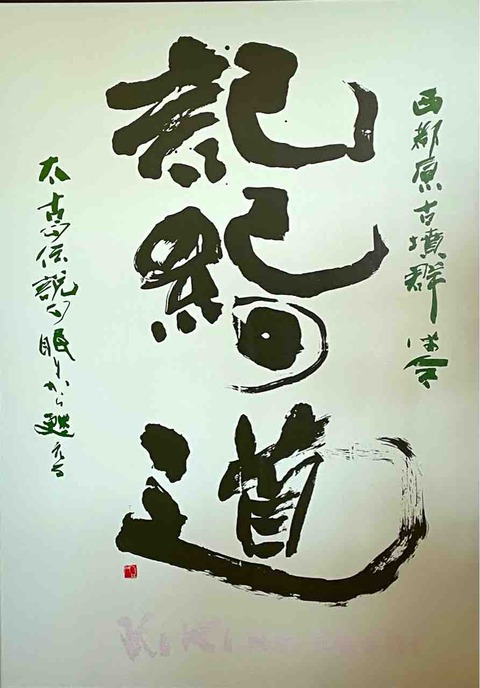 西都原古墳群は今
記紀の道
太古の伝説の眠りから甦える